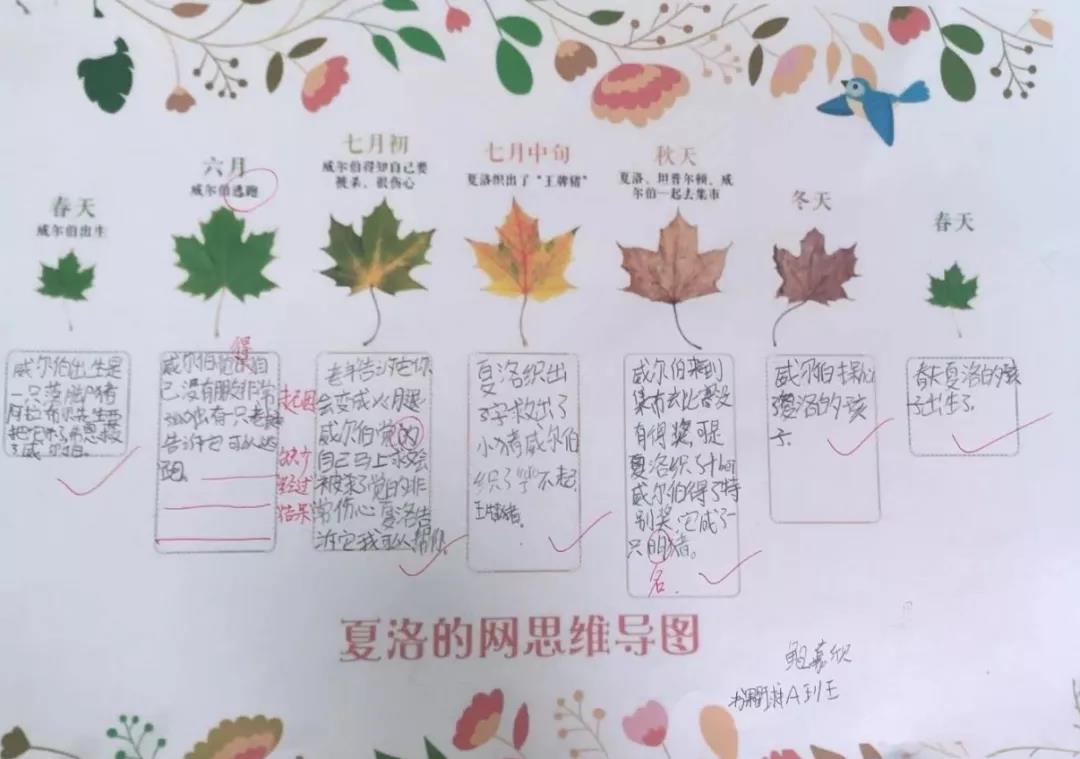 春天
威尔伯出生
六月
威尔伯逃跑
七月初
威尔伯得知自己要
被杀、很伤心
七月中旬
夏洛织出了“王牌猪”
秋天
夏洛、坦普尔顿、威
尔伯一起去集市
冬天
春天
威尔伯出生是
一只落脚猪
威尔伯觉得自
己没有朋友非常
有一只老
告诉它可以逃
跑。
起因
缺少
经过
结果
老羊告诉它你
会变成火腿
威尔伯觉的
自己马上就会
被杀了觉的非
常伤心夏洛告
诉它我可以帮你
夏洛织出
了字救出了
小猪威尔伯
织了 了不起,
王牌猪。
威尔伯来到
集市去比赛没
有得奖,可是
夏洛织了
威尔伯得了特
别奖,它成了一
只明猪。
名
威尔伯
了夏洛的孩
子。
春天夏洛的孩
子出生了
夏洛的网思维导图
A班